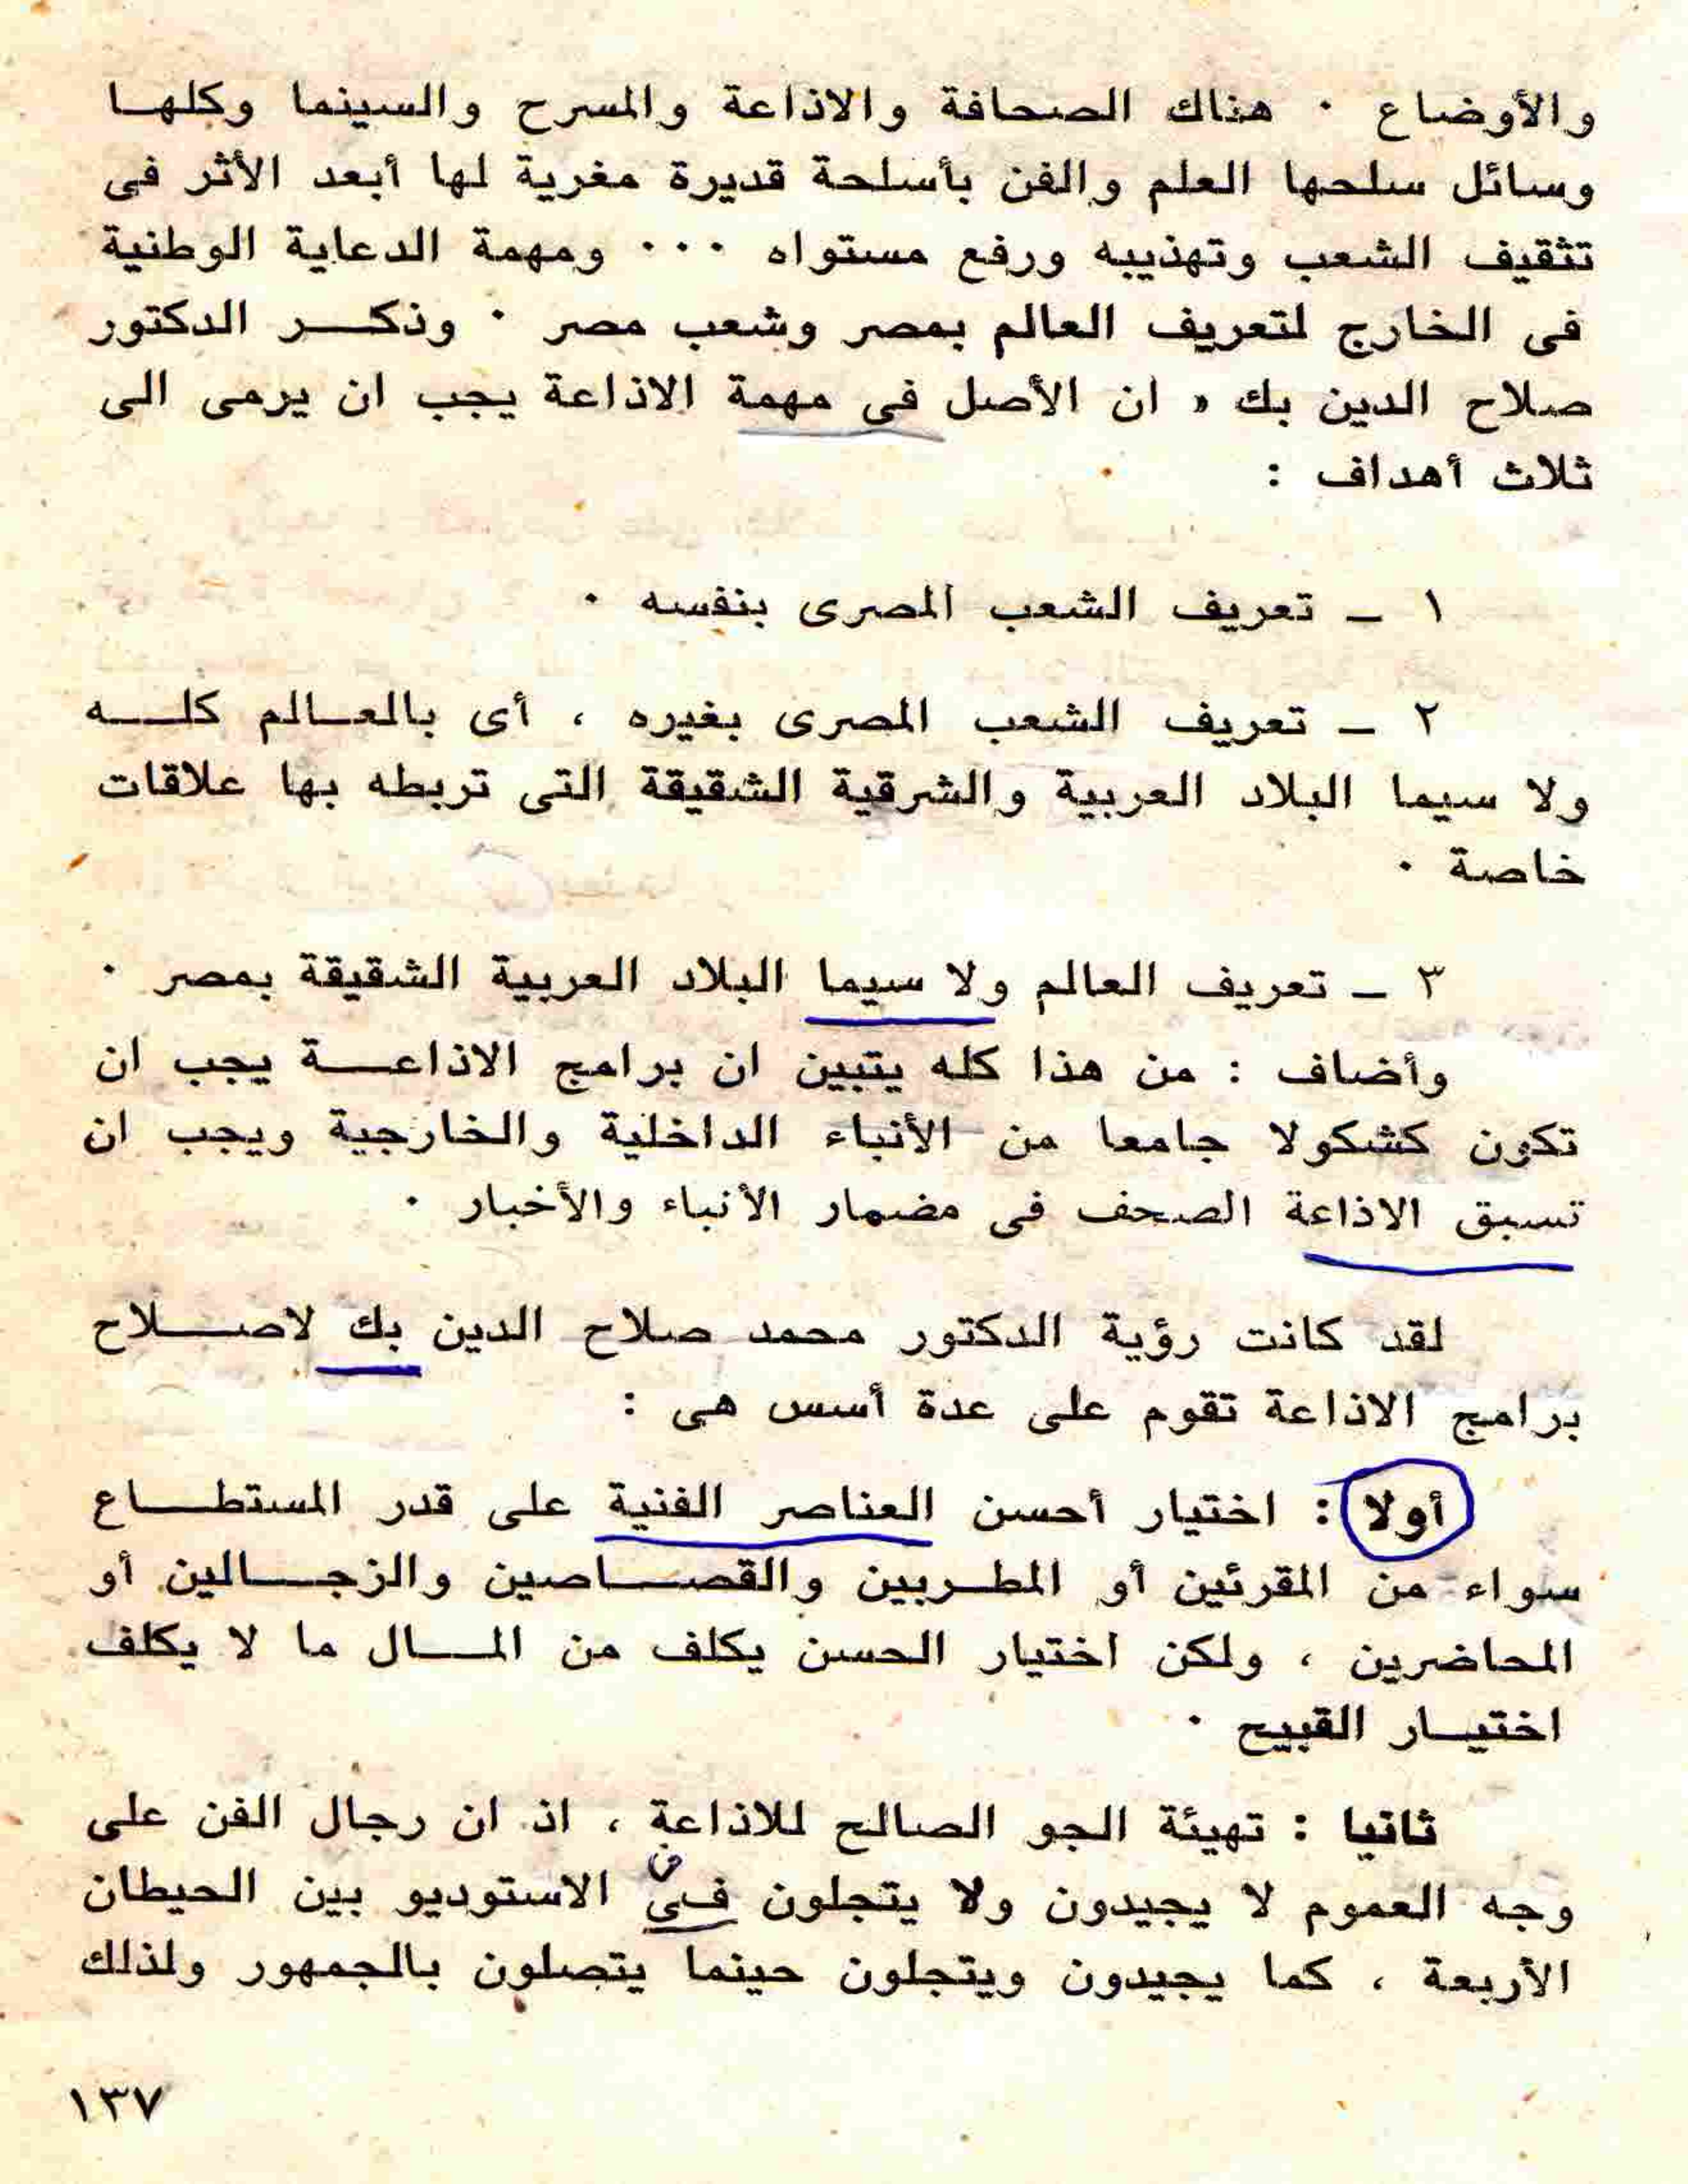 والأوضاع . هناك الصحافة والاذاعة والمسرح والسينما وكلها
وسائل سلحها العلم والفن بأسلحة قديرة مغرية لها أبعد الأثر فى
تثقيف الشعب وتهذيبه ورفع مستواه ... ومهمة الدعاية الوطنية
فى الخارج لتعريف العالم بمصر وشعب مصر . وذكر الدكتور
صلاح الدين بك « ان الأصل فى مهمة الاذاعة يجب ان يرمى الى
ثلاث أهداف :
١ ـ تعريف الشعب المصرى بنفسه .
٢ ـ تعريف الشعب المصرى بغيره ، أى بالعالم كله
ولا سيما البلاد العربية والشرقية الشقيقة التى تربطه بها علاقات
خاصة .
٣ ـ تعريف العالم ولا سيما البلاد العربية الشقيقة بمصر .
وأضاف : من هذا كله يتبين ان برامج الاذاعة يجب ان
تكون كشكولا جامعا من الأنباء الداخلية والخارجية ويجب ان
تسبق الاذاعة الصحف فى مضمار الأنباء والأخبار .
لقد كانت رؤية الدكتور محمد صلاح الدين بك لاصلاح
برامج الاذاعة تقوم على عدة أسس هى :
أولا : اختيار أحسن العناصر الفنية على قدر المستطاع
سواء من المقرئين أو المطربين والقصاصين والزجالين أو
المحاضرين ، ولكن اختيار الحسن يكلف من المال ما لا يكلف
اختيار القبيح .
ثانيا : تهيئة الجو الصالح للاذاعة ، اذ ان رجال الفن على
وجه العموم لا يجيدون ولا يتجلون فى الاستوديو بين الحيطان
الأربعة ، كما يجيدون ويتجلون حينما يتصلون بالجمهور ولذلك
١٣٧